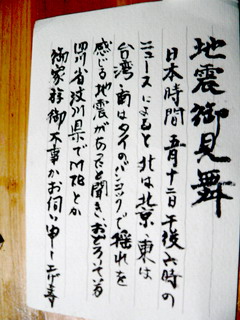 地震御見舞
日本時間 五月十二日午後六時の
ニュースによると北は北京、東は
台湾、南はタイのバンコックで揺れを
感じる地震があったと聞き、おどろいています
四川省汶川県でM7.8とか
御家族御不事かお伺い申し上ます